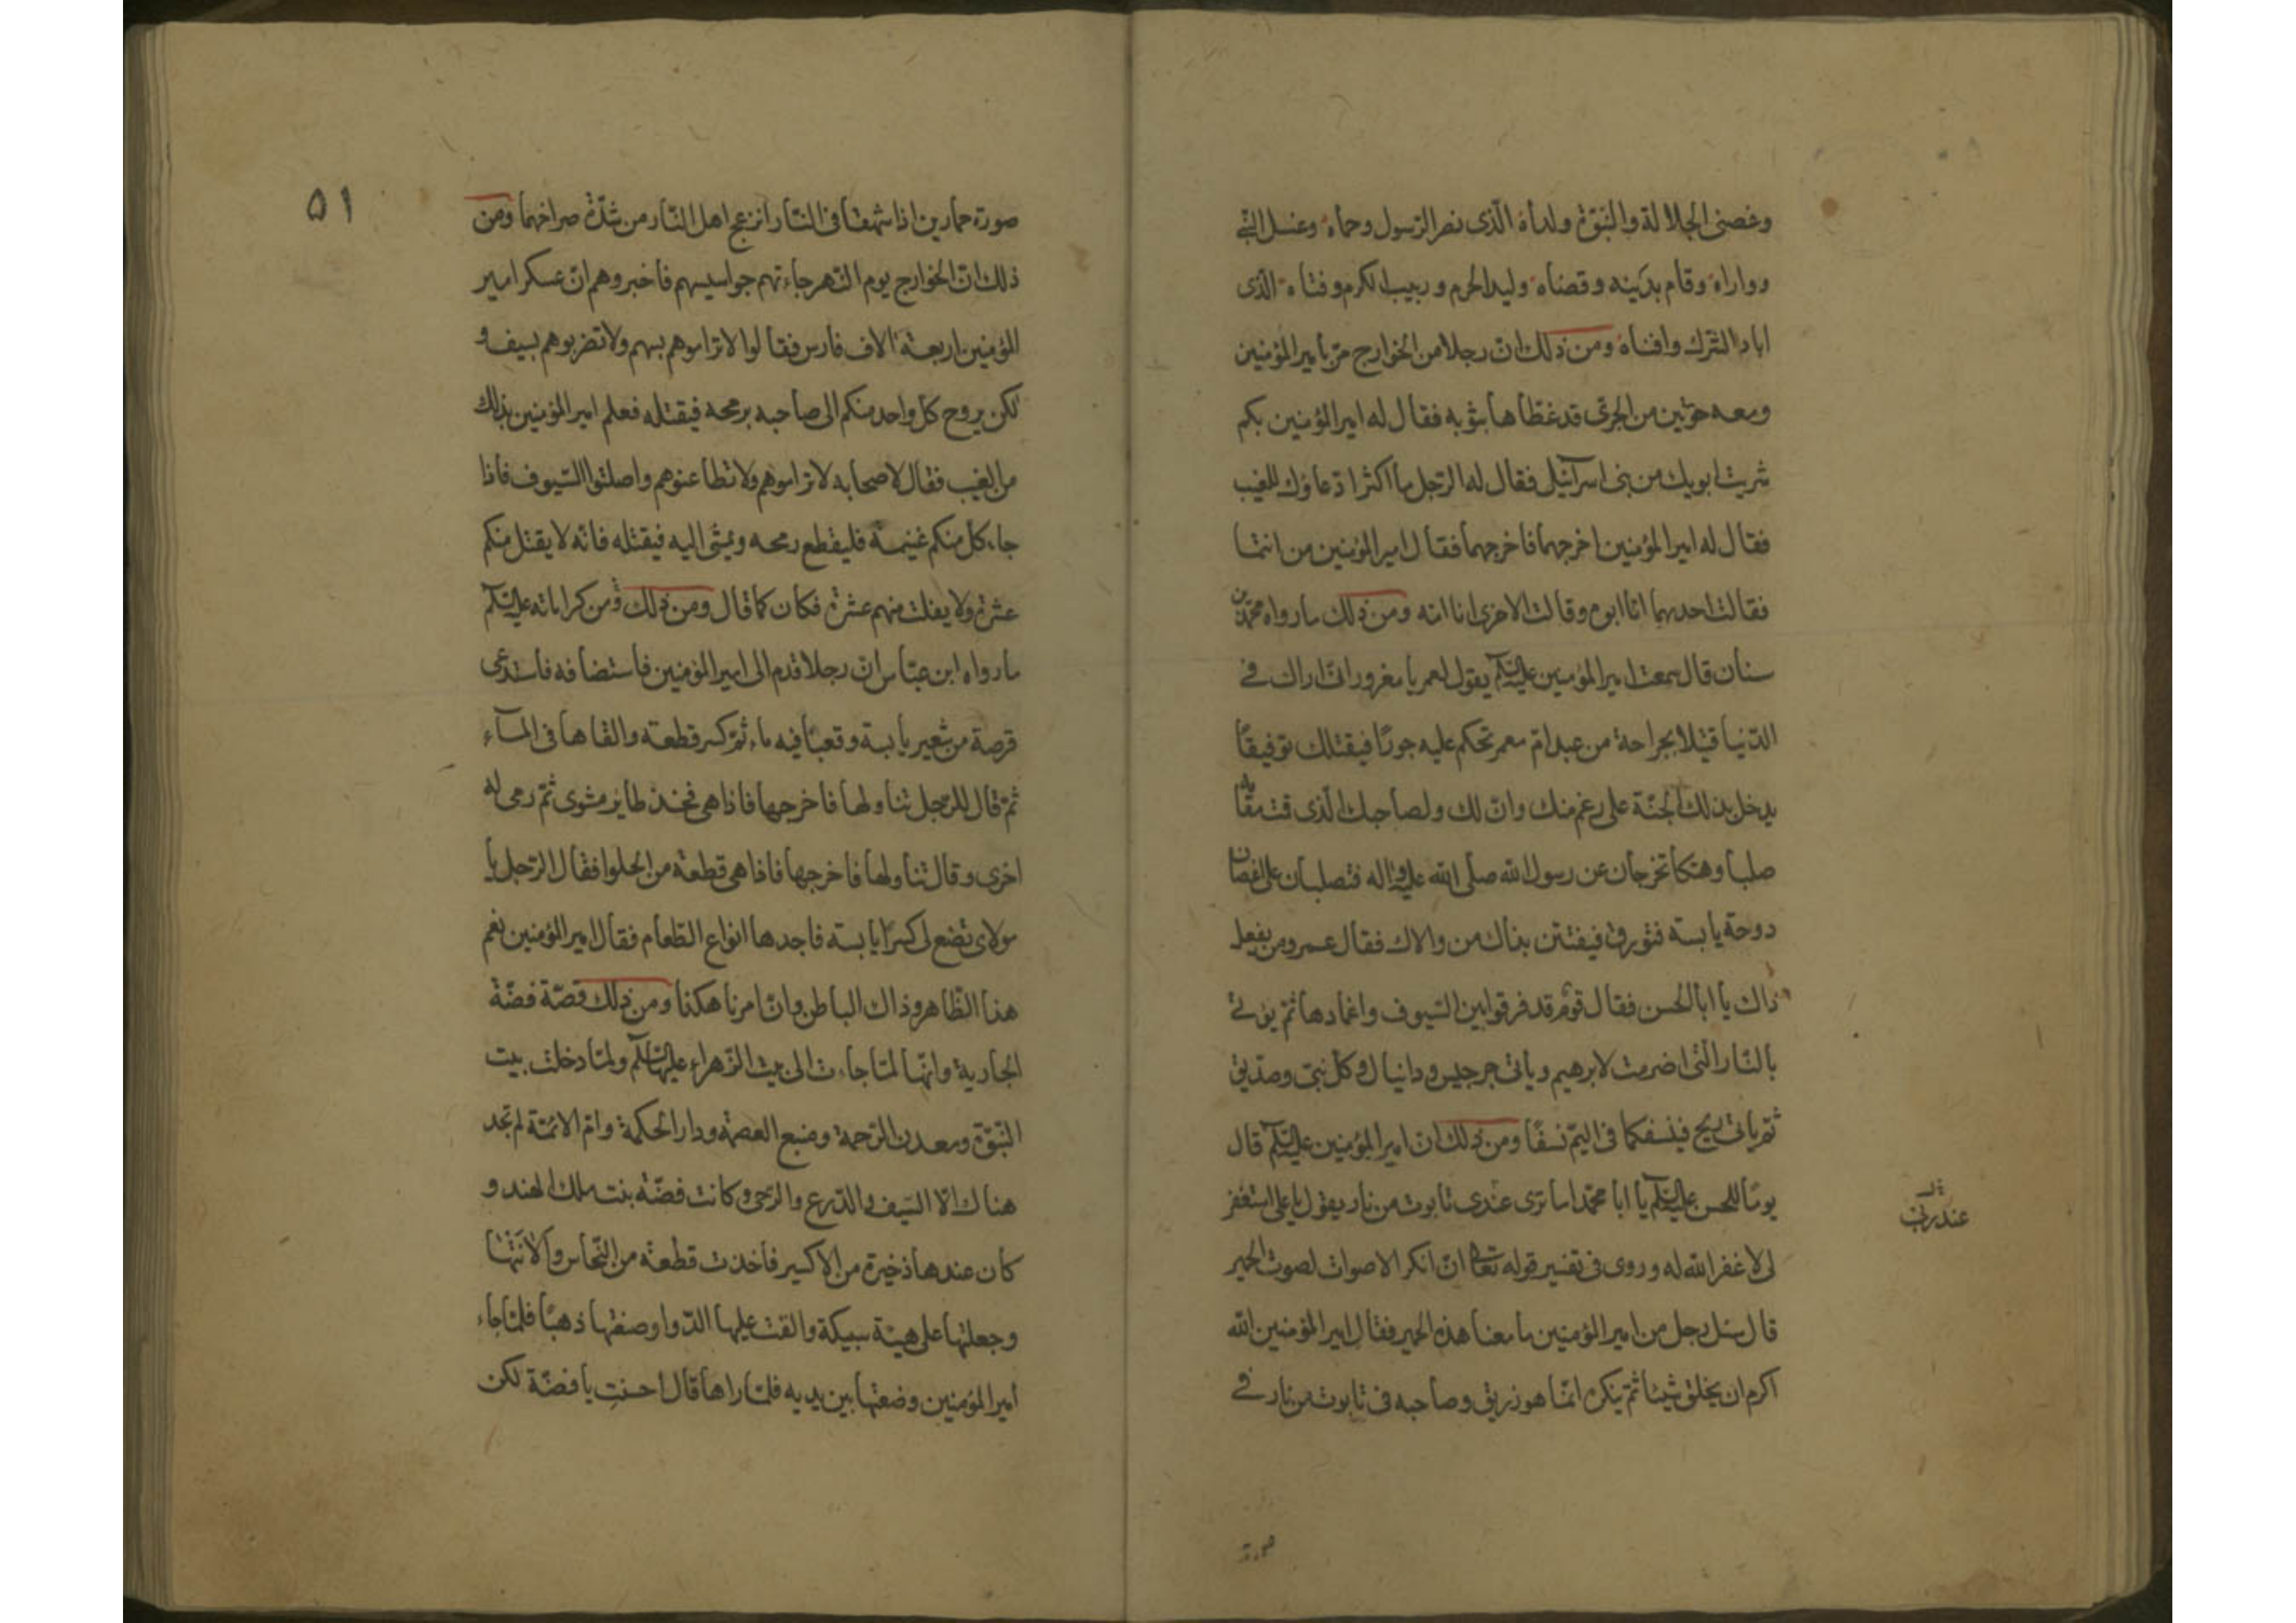 وغصنى الجلالة والنبوّة ولداه الّذى نصر الرّسول وحماه وغسل النّبى
وواراه وقام بدَينه وقضاه وليد الحرم وربيب الكرم وفتاه الذى
اباد الشرك وافناه ومن ذلك انّ رجلا من الخوارج مرّ بامير المؤمنين
ومعه حوتين من الجرّى قد غطّاها بثوبه فقال له امير المؤمنين بكم
شريت ابويك من بنى اسرآئيل فقال له الرّجل ما اكثر ادّعاؤك للغيب
فقال له امير المؤمنين اخرجهما فاخرجهما فقال امير المؤمنين من انتما
فقالت احديهما انا ابوه وقالت الاخرى انا امّه ومن ذلك ما رواه محمّد بن
سنان قال سمعت امير المؤمنين عليه السّلم يقول لعمر يا مغرور انّى اراك فى
الدّنيا قتيلا بجراحة من عبد امّ معمر تحكم عليه جورًا فيقتلك توفيقًا
يدخل بذلك الجنّة على رغم منك وانّ لك ولصاحبك الّذى قمت مقامه
صلبا وهتكا تخرجان عن رسول الله صلى الله عليه واله فتصلبان على اغصان
دوحة يابسة فتورق فيفتتن بذاك من والاك فقال عمر ومن يفعل
ذاك يا ابا الحسن فقال قوم قد فرقوا بين السّيوف واغمادها ثمّ يؤتى
بالنّار الّتى اضرمت لابرهيم وياتى جرجيس ودانيال وكلّ نبىّ وصدّيق
ثمّ ياتى ريح فينسفكما فى اليمّ نسفًا ومن ذلك ان امير المؤمنين عليه السّلم قال
يومًا للحسن عليه السّلم يا ابا محمّد اما ترى عندى تابوت من نار يقول يا على استغفر
لى لا غفر الله له وروى فى تفسير قوله تعالى انّ انكر الاصوات لصوت الحمير
قال سئل رجل من امير المؤمنين ما معنا هذه الحمير فقال امير المؤمنين الله
اكرم ان يخلق شيئا ثمّ ينكره انّما هو زريق وصاحبه فى تابوت من نار فى
صورة
٥١
صورة حمارين اذا شهقا فى النّار انزعج اهل النّار من شدّة صراخهما ومن
ذلك انّ الخوارج يوم النّهر جاءتهم جواسيسهم فاخبروهم انّ عسكر امير
المؤمنين اربعة الاف فارس فقالوا لا تراموهم بسهم ولا تضربوهم بسيف و
لكن يروح كل واحد منكم الى صاحبه برمحه فيقتله فعلم امير المؤمنين بذلك
من الغيب فقال لاصحابه لا تراموهم ولا تطاعنوهم واصلتوا السّيوف فاذا
جاء كلّ منكم غنيمة فليقطع رمحه ويمشى اليه فيقتله فانّه لا يقتل منكم
عشرة ولا يفلت منهم عشرة فكان كما قال ومن ذلك ومن كراماته عليه السّلم
ما رواه ابن عبّاس انّ رجلا قدم الى امير المؤمنين فاستضافه فاستدعى
قرصة من شعير يابسة وقعبًا فيه ماء ثمّ كسر قطعة والقاها فى المآء
ثمّ قال للرّجل تناولها فاخرجها فاذا هى فخذ طاير مشوى ثمّ رمى له
اخرى وقال تناولها فاخرجها فاذا هى قطعة من الحلوا فقال الرّجل يا
مولاى تضع لى كسرًا يابسة فاجدها انواع الطّعام فقال امير المؤمنين نعم
هذا الظّاهر وذاك الباطن وانّ امرنا هكذا ومن ذلك قصّة فضّة
الجارية وانّها لمّا جاءت الى بيت الزّهراء عليها السّلم ولمّا دخلت بيت
النّبوّة ومعدن الرّحمة ومنبع العصمة ودار الحكمة وامّ الائمّة لم تجد
هناك الّا السّيف والدّرع والرّحى وكانت فضّة بنت ملك الهند و
كان عندها ذخيرة من الاكسير فاخذت قطعة من النّحاس والانتها
وجعلتها على هيئة سبيكة والقت عليها الدّوا وصنعتها ذهبًا فلمّا جاء
امير المؤمنين وضعتها بين يديه فلمّا راها قال احسنتِ يا فضّة لكن